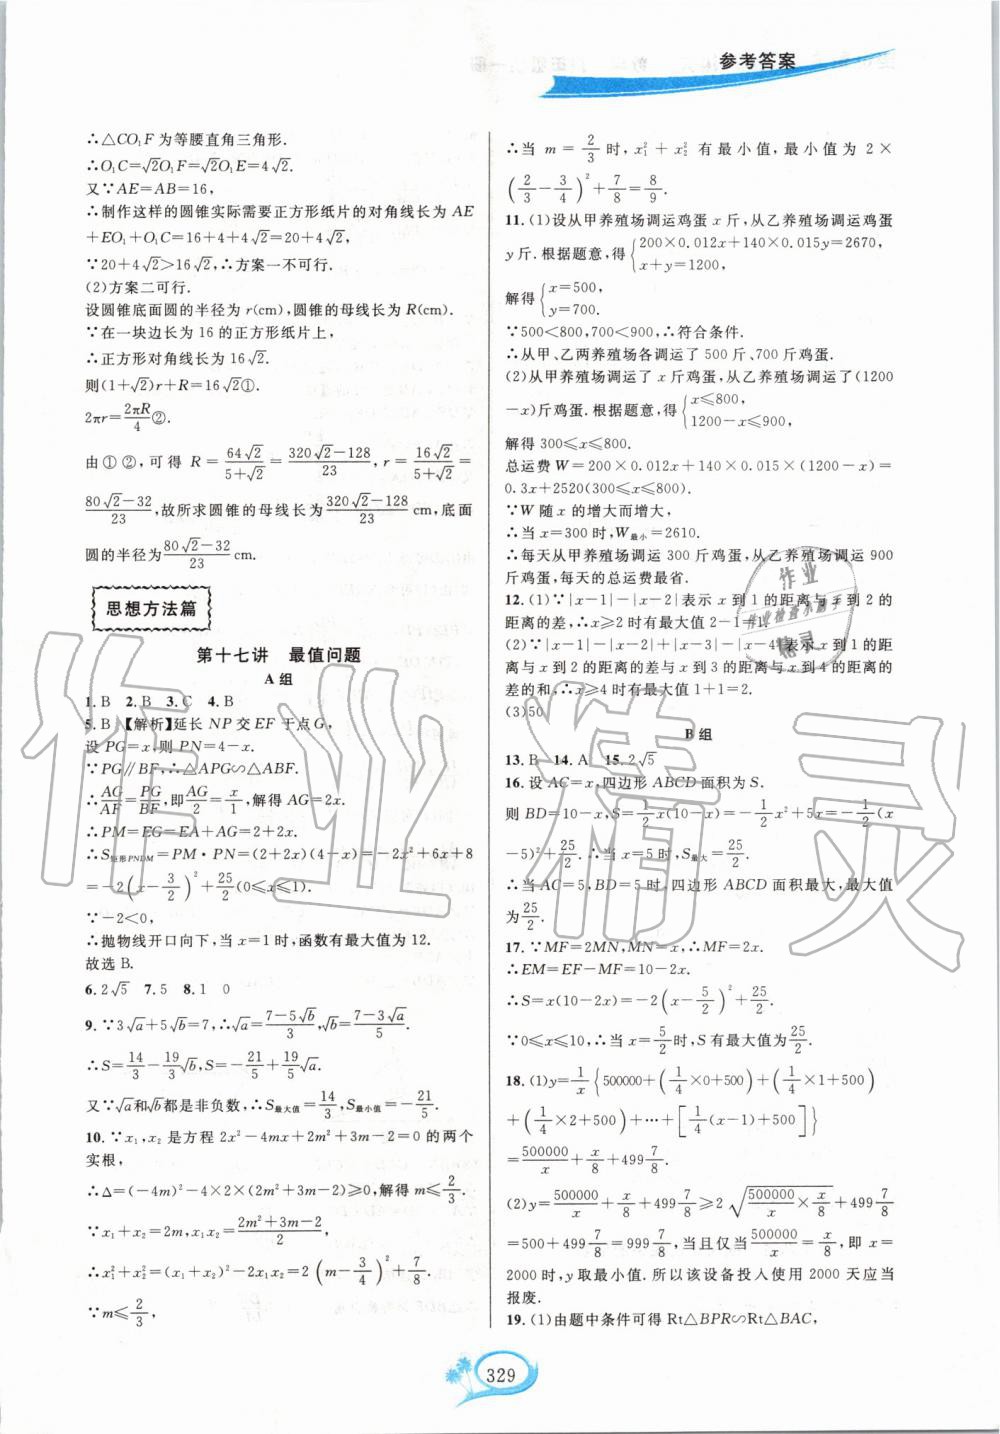 参考答案
∴△CO₁F 为等腰直角三角形.
∴O₁C=√2O₁F=√2O₁E=4√2.
又∵AE=AB=16,
∴制作这样的圆锥实际需要正方形纸片的对角线长为 AE
+EO₁+O₁C=16+4+4√2=20+4√2,
∵20+4√2>16√2,∴方案一不可行.
(2)方案二可行.
设圆锥底面圆的半径为 r(cm),圆锥的母线长为 R(cm).
∵在一块边长为 16 的正方形纸片上,
∴正方形对角线长为 16√2.
则(1+√2)r+R=16√2①.
2πr=2πR/4②.
由①②,可得 R=64√2/(5+√2)=(320√2-128)/23, r=16√2/(5+√2)=
(80√2-32)/23,故所求圆锥的母线长为(320√2-128)/23 cm,底面
圆的半径为(80√2-32)/23 cm.
思想方法篇
第十七讲 最值问题
A 组
1.B 2.B 3.C 4.B
5.B 【解析】延长 NP 交 EF 于点 G,
设 PG=x,则 PN=4-x.
∵PG∥BF,∴△APG∽△ABF.
∴AG/AF=PG/BF,即AG/2=x/1,解得 AG=2x.
∴PM=EG=EA+AG=2+2x.
∴S矩形PNDM=PM·PN=(2+2x)(4-x)=-2x²+6x+8
=-2(x-3/2)²+25/2(0≤x≤1).
∵-2<0,
∴抛物线开口向下,当 x=1 时,函数有最大值为 12.
故选 B.
6.2√5 7.5 8.1 0
9.∵3√a+5√b=7,∴√a=(7-5√b)/3,√b=(7-3√a)/5.
∴S=14/3-19/3√b,S=-21/5+19/5√a.
又∵√a和√b都是非负数,∴S最大值=14/3,S最小值=-21/5.
10.∵x₁,x₂ 是方程 2x²-4mx+2m²+3m-2=0 的两个
实根,
∴Δ=(-4m)²-4×2×(2m²+3m-2)≥0,解得 m≤2/3.
∵x₁+x₂=2m,x₁x₂=(2m²+3m-2)/2,
∴x₁²+x₂²=(x₁+x₂)²-2x₁x₂=2(m-3/4)²+7/8.
∵m≤2/3,
∴当 m=2/3 时,x₁²+x₂² 有最小值,最小值为 2×
(2/3-3/4)²+7/8=8/9.
11.(1)设从甲养殖场调运鸡蛋 x 斤,从乙养殖场调运鸡蛋
y 斤.根据题意,得{200×0.012x+140×0.015y=2670, x+y=1200,
解得{x=500, y=700.
∵500<800,700<900,∴符合条件.
∴从甲、乙两养殖场各调运了 500 斤、700 斤鸡蛋.
(2)从甲养殖场调运了 x 斤鸡蛋,从乙养殖场调运了(1200
-x)斤鸡蛋.根据题意,得{x≤800, 1200-x≤900,
解得 300≤x≤800.
总运费 W=200×0.012x+140×0.015×(1200-x)=
0.3x+2520(300≤x≤800).
∵W 随 x 的增大而增大,
∴当 x=300 时,W最小=2610.
∴每天从甲养殖场调运 300 斤鸡蛋,从乙养殖场调运 900
斤鸡蛋,每天的总运费最省.
12.(1)∵|x-1|-|x-2|表示 x 到 1 的距离与 x 到 2 的
距离的差,∴x≥2 时有最大值 2-1=1.
(2)∵|x-1|-|x-2|+|x-3|-|x-4|表示 x 到 1
的距离与 x 到 2 的距离的差与 x 到 3 的距离与 x 到 4 的
距离的差的和,∴x≥4 时有最大值 1+1=2.
(3)50
B 组
13.B 14.A 15.2√5
16.设 AC=x,四边形 ABCD 面积为 S.
则 BD=10-x,S=1/2x(10-x)=-1/2x²+5x=-1/2(x
-5)²+25/2.∴当 x=5 时,S最大=25/2.
∴当 AC=5,BD=5 时,四边形 ABCD 面积最大,最大值
为25/2.
17.∵MF=2MN,MN=x,∴MF=2x.
∴EM=EF-MF=10-2x.
∴S=x(10-2x)=-2(x-5/2)²+25/2.
∵0≤x≤10,∴当 x=5/2时,S 有最大值25/2.
18.(1)y=1/x{500000+(1/4×0+500)+(1/4×1+500)
+(1/4×2+500)+…+[1/4(x-1)+500]}
=500000/x+x/8+499 7/8.
(2)y=500000/x+x/8+499 7/8≥2√(500000/x·x/8)+499 7/8=
500+499 7/8=999 7/8,当且仅当500000/x=x/8,即 x=
2000 时,y 取最小值.所以该设备投入使用 2000 天应当
报废.
19.(1)由题中条件可得 Rt△BPR∽Rt△BAC,
329
作业精灵
作业
作业检查小助手
精灵